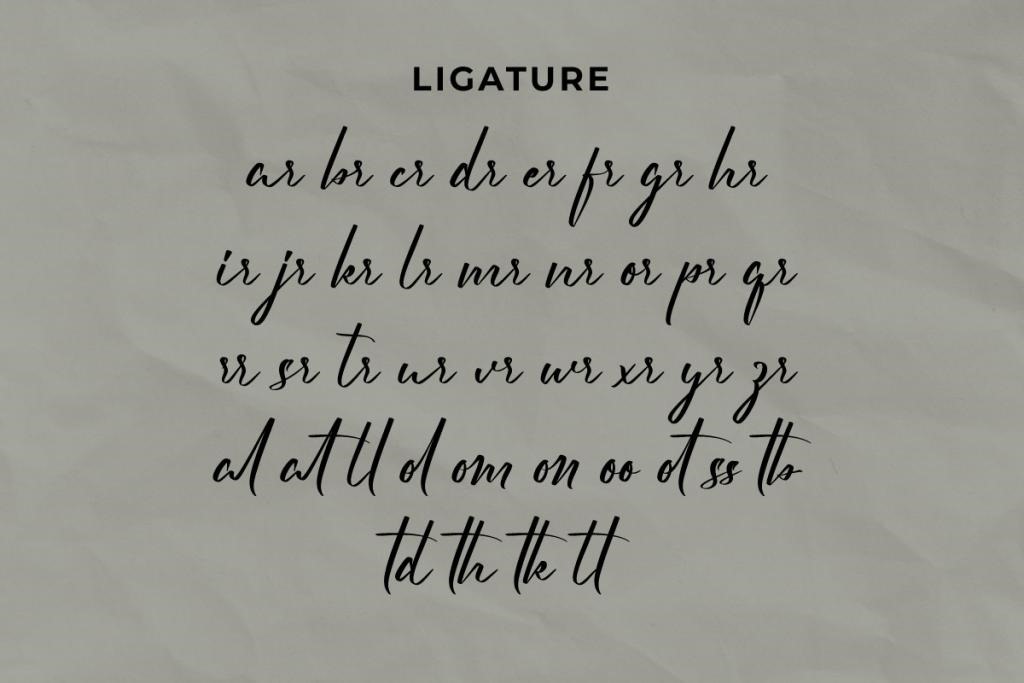 LIGATURE
ar br cr dr er fr gr hr
ir jr kr lr mr nr or pr qr
rr sr tr ur vr wr xr yr zr
al at ll ol om on oo ot ss tb
td th tk tt